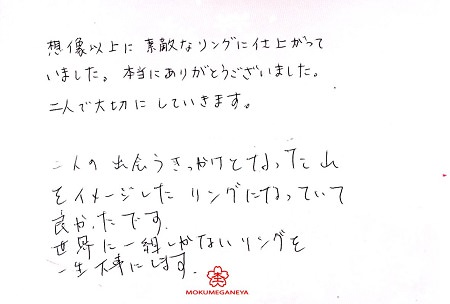 想像以上に素敵なリングに仕上がって
いました。本当にありがとうございました。
二人で大切にしていきます。
二人の出会うきっかけとなった山
をイメージしたリングになっていて
良かったです。
世界に一組しかないリングを
一生大事にします。
MOKUMEGANEYA